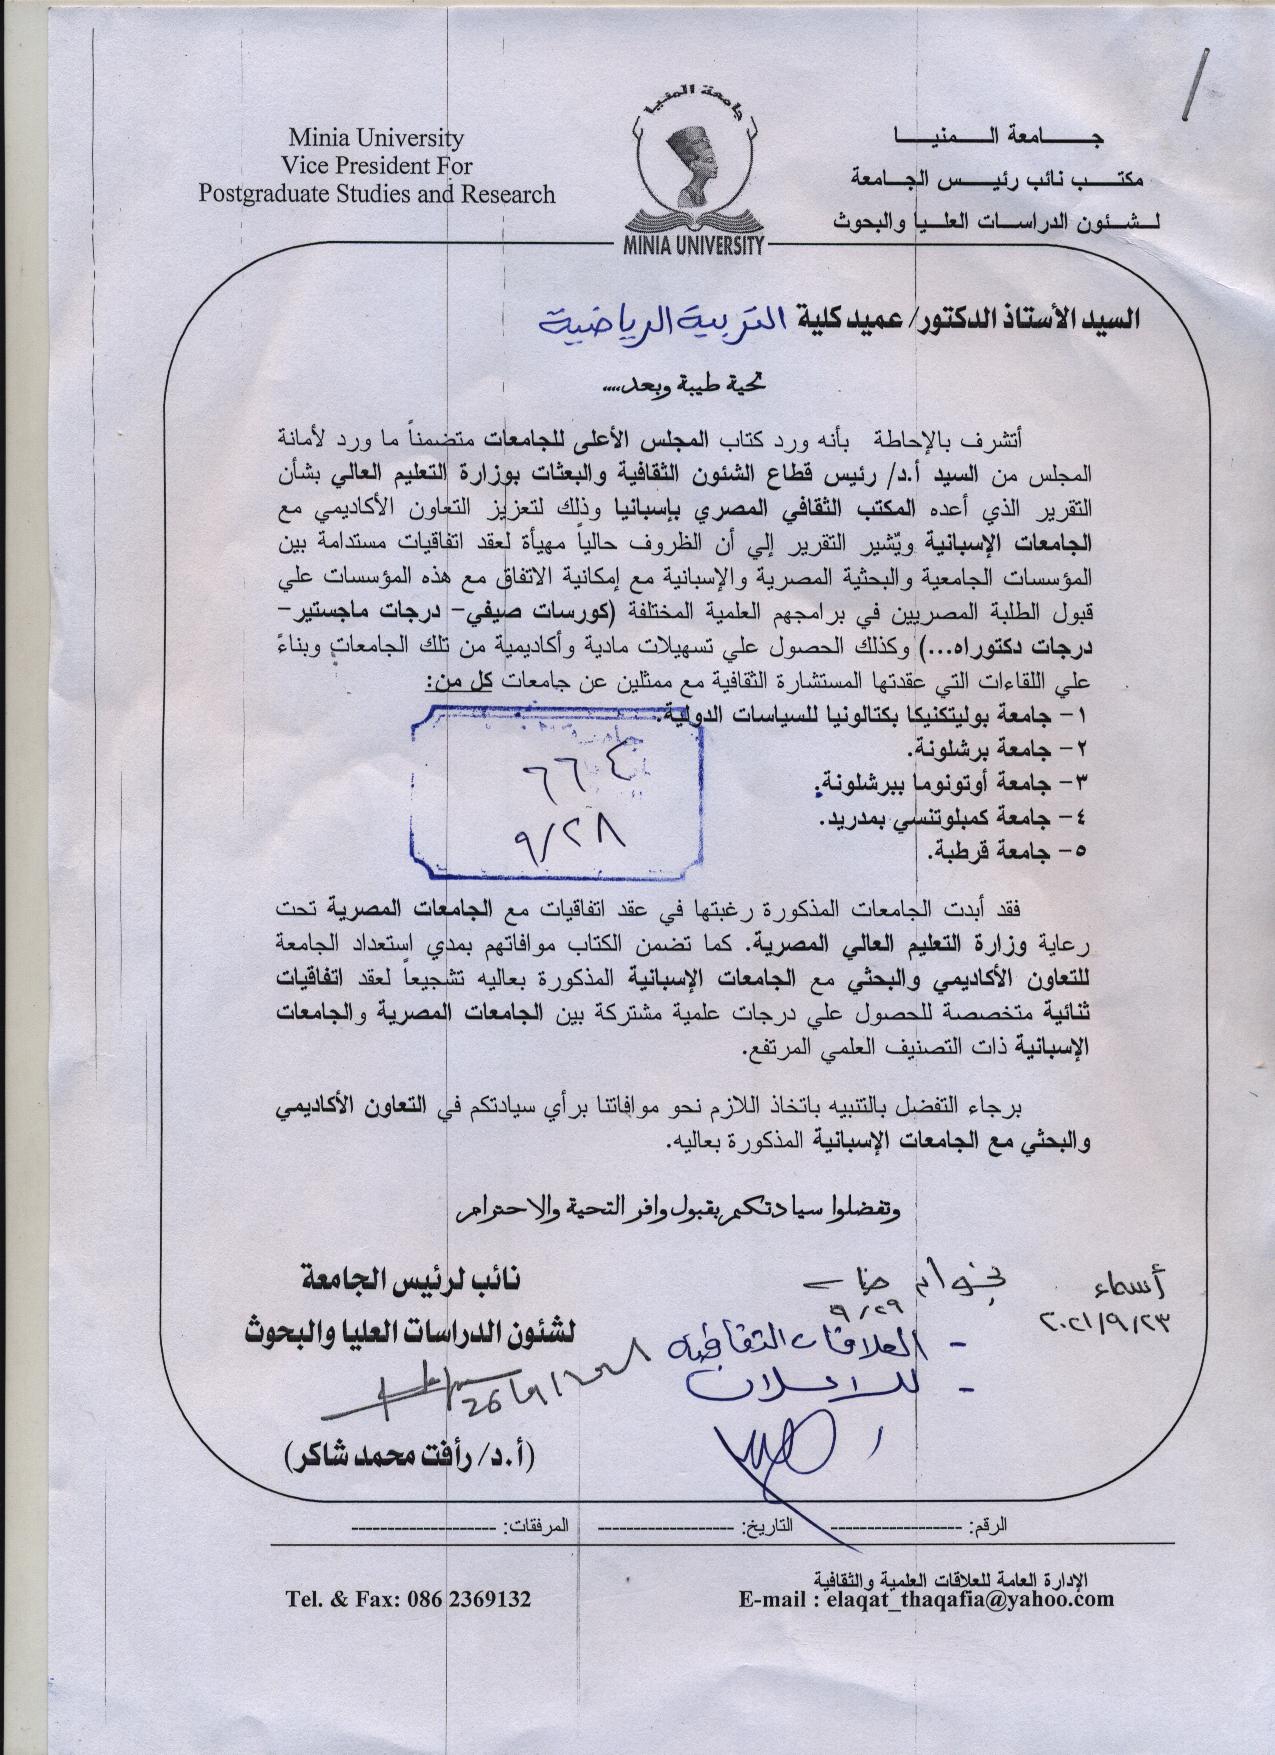 جامعة المنيا
Minia University
Vice President For
Postgraduate Studies and Research
MINIA UNIVERSITY
جـــامعة الـــمنيـــا
مكتـــب نائب رئيـــس الجـامعة
لـــشئون الدراســـات العلـيا والبحوث
السيد الأستاذ الدكتور/ عميد كلية التربية الرياضية
تحية طيبة وبعد....
أتشرف بالإحاطة بأنه ورد كتاب المجلس الأعلى للجامعات متضمناً ما ورد لأمانة
المجلس من السيد أ.د/ رئيس قطاع الشئون الثقافية والبعثات بوزارة التعليم العالي بشأن
التقرير الذي أعده المكتب الثقافي المصري بإسبانيا وذلك لتعزيز التعاون الأكاديمي مع
الجامعات الإسبانية ويُشير التقرير إلي أن الظروف حالياً مهيأة لعقد اتفاقيات مستدامة بين
المؤسسات الجامعية والبحثية المصرية والإسبانية مع إمكانية الاتفاق مع هذه المؤسسات علي
قبول الطلبة المصريين في برامجهم العلمية المختلفة (كورسات صيفي- درجات ماجستير-
درجات دكتوراه...) وكذلك الحصول علي تسهيلات مادية وأكاديمية من تلك الجامعات وبناءً
علي اللقاءات التي عقدتها المستشارة الثقافية مع ممثلين عن جامعات كل من:
١- جامعة بوليتكنيكا بكتالونيا للسياسات الدولية.
٢- جامعة برشلونة.
٣- جامعة أوتونوما ببرشلونة.
٤- جامعة كمبلوتنسي بمدريد.
٥- جامعة قرطبة.
٦٦٤
٩/٢٨
فقد أبدت الجامعات المذكورة رغبتها في عقد اتفاقيات مع الجامعات المصرية تحت
رعاية وزارة التعليم العالي المصرية. كما تضمن الكتاب موافاتهم بمدي استعداد الجامعة
للتعاون الأكاديمي والبحثي مع الجامعات الإسبانية المذكورة بعاليه تشجيعاً لعقد اتفاقيات
ثنائية متخصصة للحصول علي درجات علمية مشتركة بين الجامعات المصرية والجامعات
الإسبانية ذات التصنيف العلمي المرتفع.
برجاء التفضل بالتنبيه باتخاذ اللازم نحو موافاتنا برأي سيادتكم في التعاون الأكاديمي
والبحثي مع الجامعات الإسبانية المذكورة بعاليه.
وتفضلوا سيادتكم بقبول وافر التحية والاحترام
أسماء
٢٠٢١/٩/٢٣
٩/٢٩
- العلاقات الثقافية
- للاعلان
نائب لرئيس الجامعة
لشئون الدراسات العليا والبحوث
(أ.د/ رأفت محمد شاكر)
الرقم: ------------------ التاريخ: ------------------- المرفقات: --------------------
الإدارة العامة للعلاقات العلمية والثقافية
E-mail : elaqat_thaqafia@yahoo.com
Tel. & Fax: 086 2369132